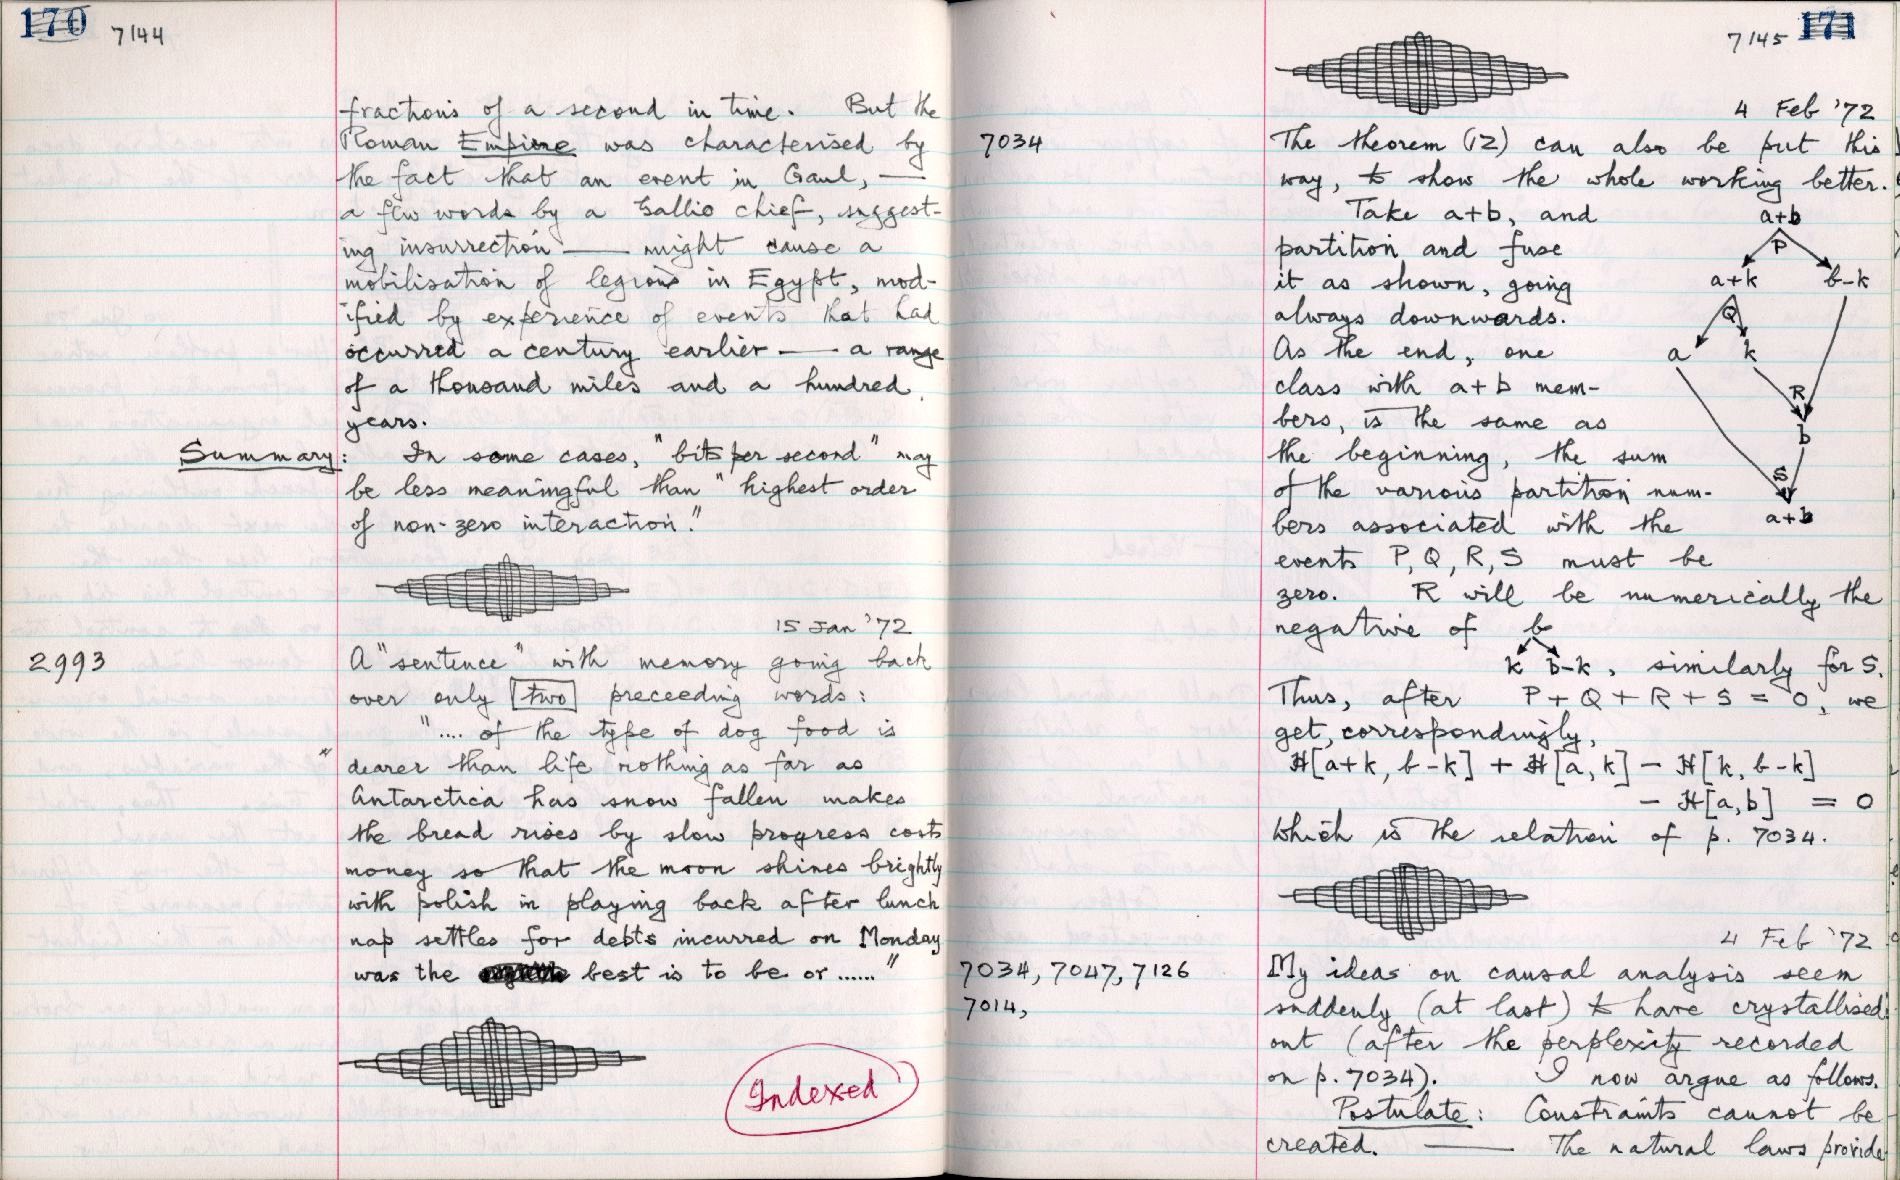 170 7144
fractions of a second in time. But the
Roman Empire was characterised by
the fact that an event in Gaul, —
a few words by a Gallic chief, suggest-
ing insurrection — might cause a
mobilisation of legions in Egypt, mod-
ified by experience of events that had
occurred a century earlier — a range
of a thousand miles and a hundred
years.
Summary: In some cases, "bits per second" may
be less meaningful than "highest order
of non-zero interaction."
15 Jan '72
2993 A "sentence" with memory going back
over only two preceeding words:
".... of the type of dog food is
" dearer than life nothing as far as
Antarctica has snow fallen makes
the bread rises by slow progress costs
money so that the moon shines brightly
with polish in playing back after lunch
nap settles for debts incurred on Monday
was the best is to be or ......"
Indexed
7145 171
4 Feb '72
7034 The theorem (12) can also be put this
way, to show the whole working better.
Take a+b, and
partition and fuse
it as shown, going
always downwards.
As the end, one
class with a+b mem-
bers, is the same as
the beginning, the sum
of the various partition num-
bers associated with the
events P, Q, R, S must be
zero. R will be numerically the
a+b
P
a+k b-k
Q
a k
R
b
S
a+b
negative of b
k b-k, similarly for S.
Thus, after P + Q + R + S = 0, we
get, correspondingly,
H[a+k, b-k] + H[a, k] - H[k, b-k]
- H[a,b] = 0
which is the relation of p. 7034.
4 Feb '72
7034, 7047, 7126 My ideas on causal analysis seem
7014, suddenly (at last) to have crystallised
out (after the perplexity recorded
on p. 7034). I now argue as follows.
Postulate: Constraints cannot be
created. — The natural laws provide